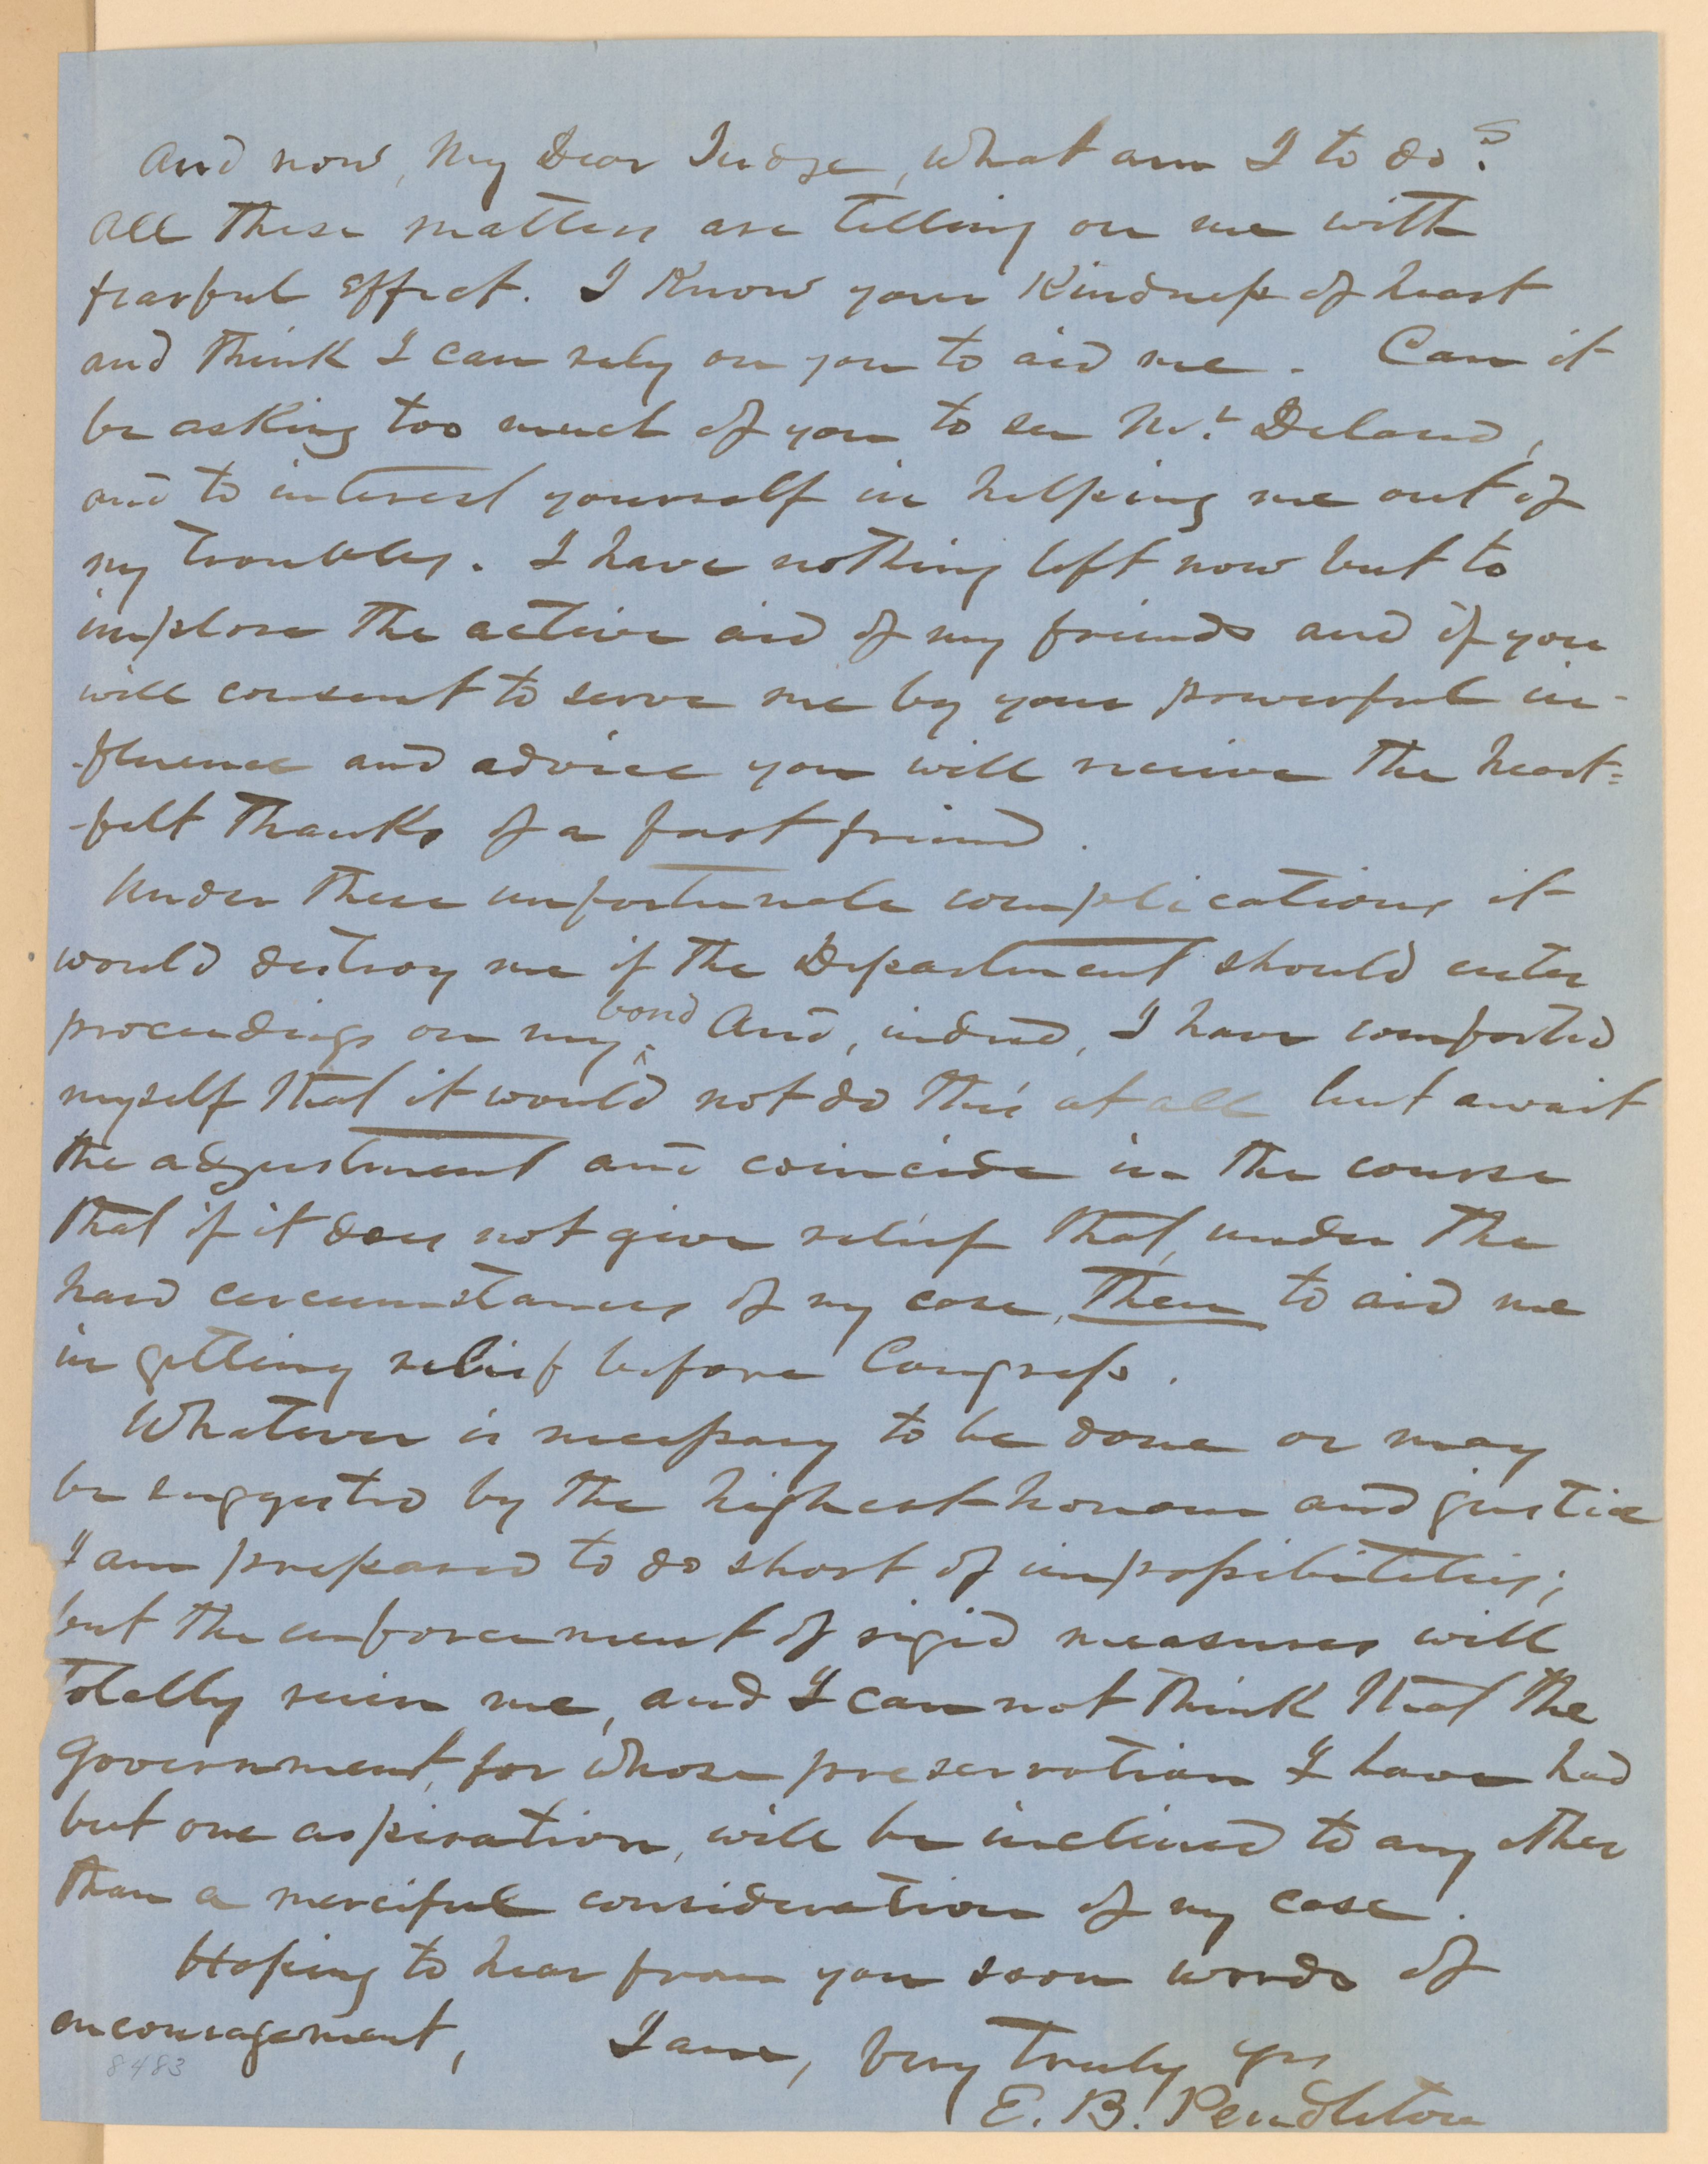 And now, My Dear Judge, what am I to do?
All these matters are telling on me with
fearful effect. I Know your Kindness of heart
and think I can rely on you to aid me. Can it
be asking too much of you to see Mr. Delano,
and to interest yourself in helping me out of
my troubles. I have nothing left now but to
implore the active aid of my friends and if you
will consent to serve me by your powerful in-
-fluence and advice you will receive the heart=
-felt thanks of a fast friend.
Under these unfortunate complications it
would destroy me if the Department should enter
proceedings on my bond. And, indeed, I have comforted
myself that it would not do this at all but await
the adjustment and coincide in the course
that if it does not give relief that, under the
hard circumstances of my case, then to aid me
in getting relief before Congress.
Whatever is necessary to be done or may
be suggested by the highest honour and justice
I am prepared to do short of impossibilities;
but the enforcement of rigid measures will
totally ruin me, and I can not think that the
Government, for whose preservation I have had
but one aspiration, will be inclined to any other
than a merciful consideration of my case.
Hoping to hear from you soon words of
encouragement, I am, Very truly yrs
E. B. Pendleton
8483